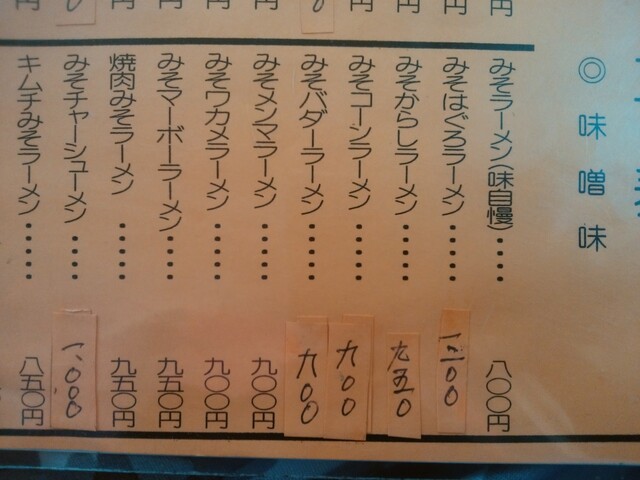 ◎味噌味
みそラーメン(味自慢)・・・・ 八〇〇円
みそはぐろラーメン・・・・・ 一、二〇〇
みそからしラーメン・・・・・ 九五〇
みそコーンラーメン・・・・・ 九〇〇
みそバターラーメン・・・・・ 九〇〇
みそメンマラーメン・・・・・ 九〇〇円
みそワカメラーメン・・・・・ 九〇〇円
みそマーボーラーメン・・・・ 九五〇円
焼肉みそラーメン・・・・・ 九五〇円
みそチャーシューメン・・・・ 一、〇〇〇
キムチみそラーメン・・・・・ 八五〇円